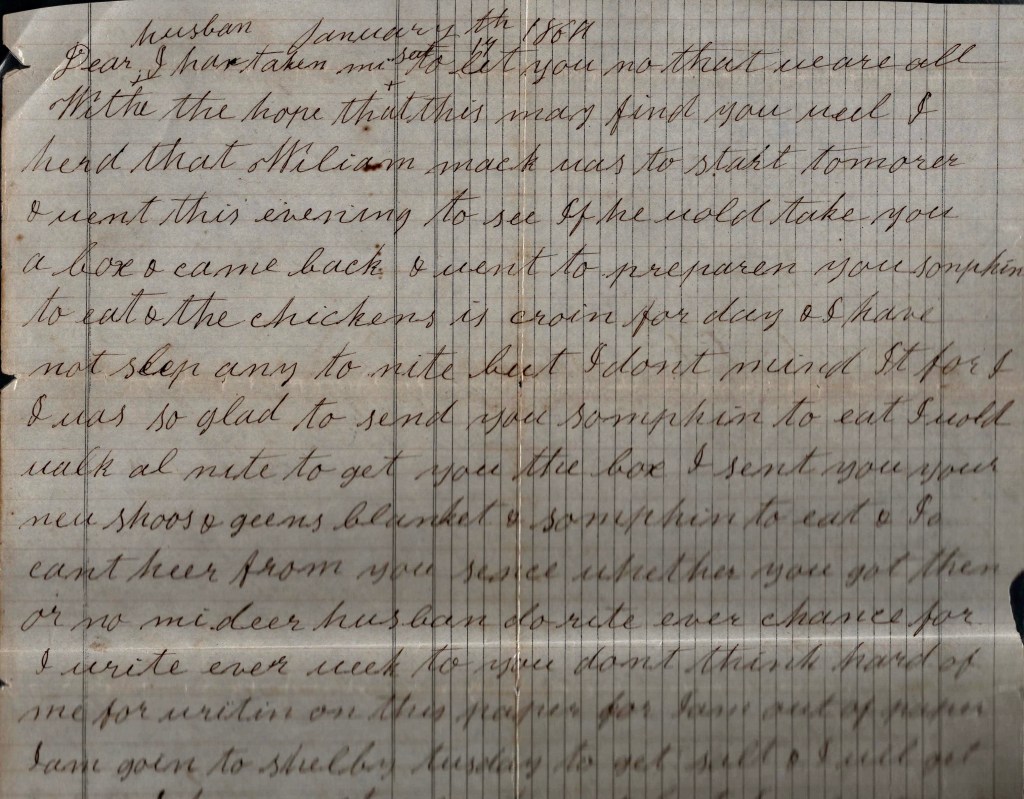 husban January th 1864
Dear, I hav taken mi seat to let you no that we are all
With the hope that this may find you well I
herd that Wiliam mack was to start tomorer
& went this evening to see If he wold take you
a box & came back & went to preparen you somphin
to eat & the chickens is croin for day & I have
not slep any to nite but I dont mind It for I
I was so glad to send you somphin to eat I wold
walk al nite to get you the box I sent you your
new shoos & geens blanket & somphin to eat & I
cant heer from you sence whether you got them
or no mi deer husban do rite ever chance for
I write ever week to you dont think hard of
me for writin on this paper for I am out of paper
I am goin to shelby tusday to get salt & I will get